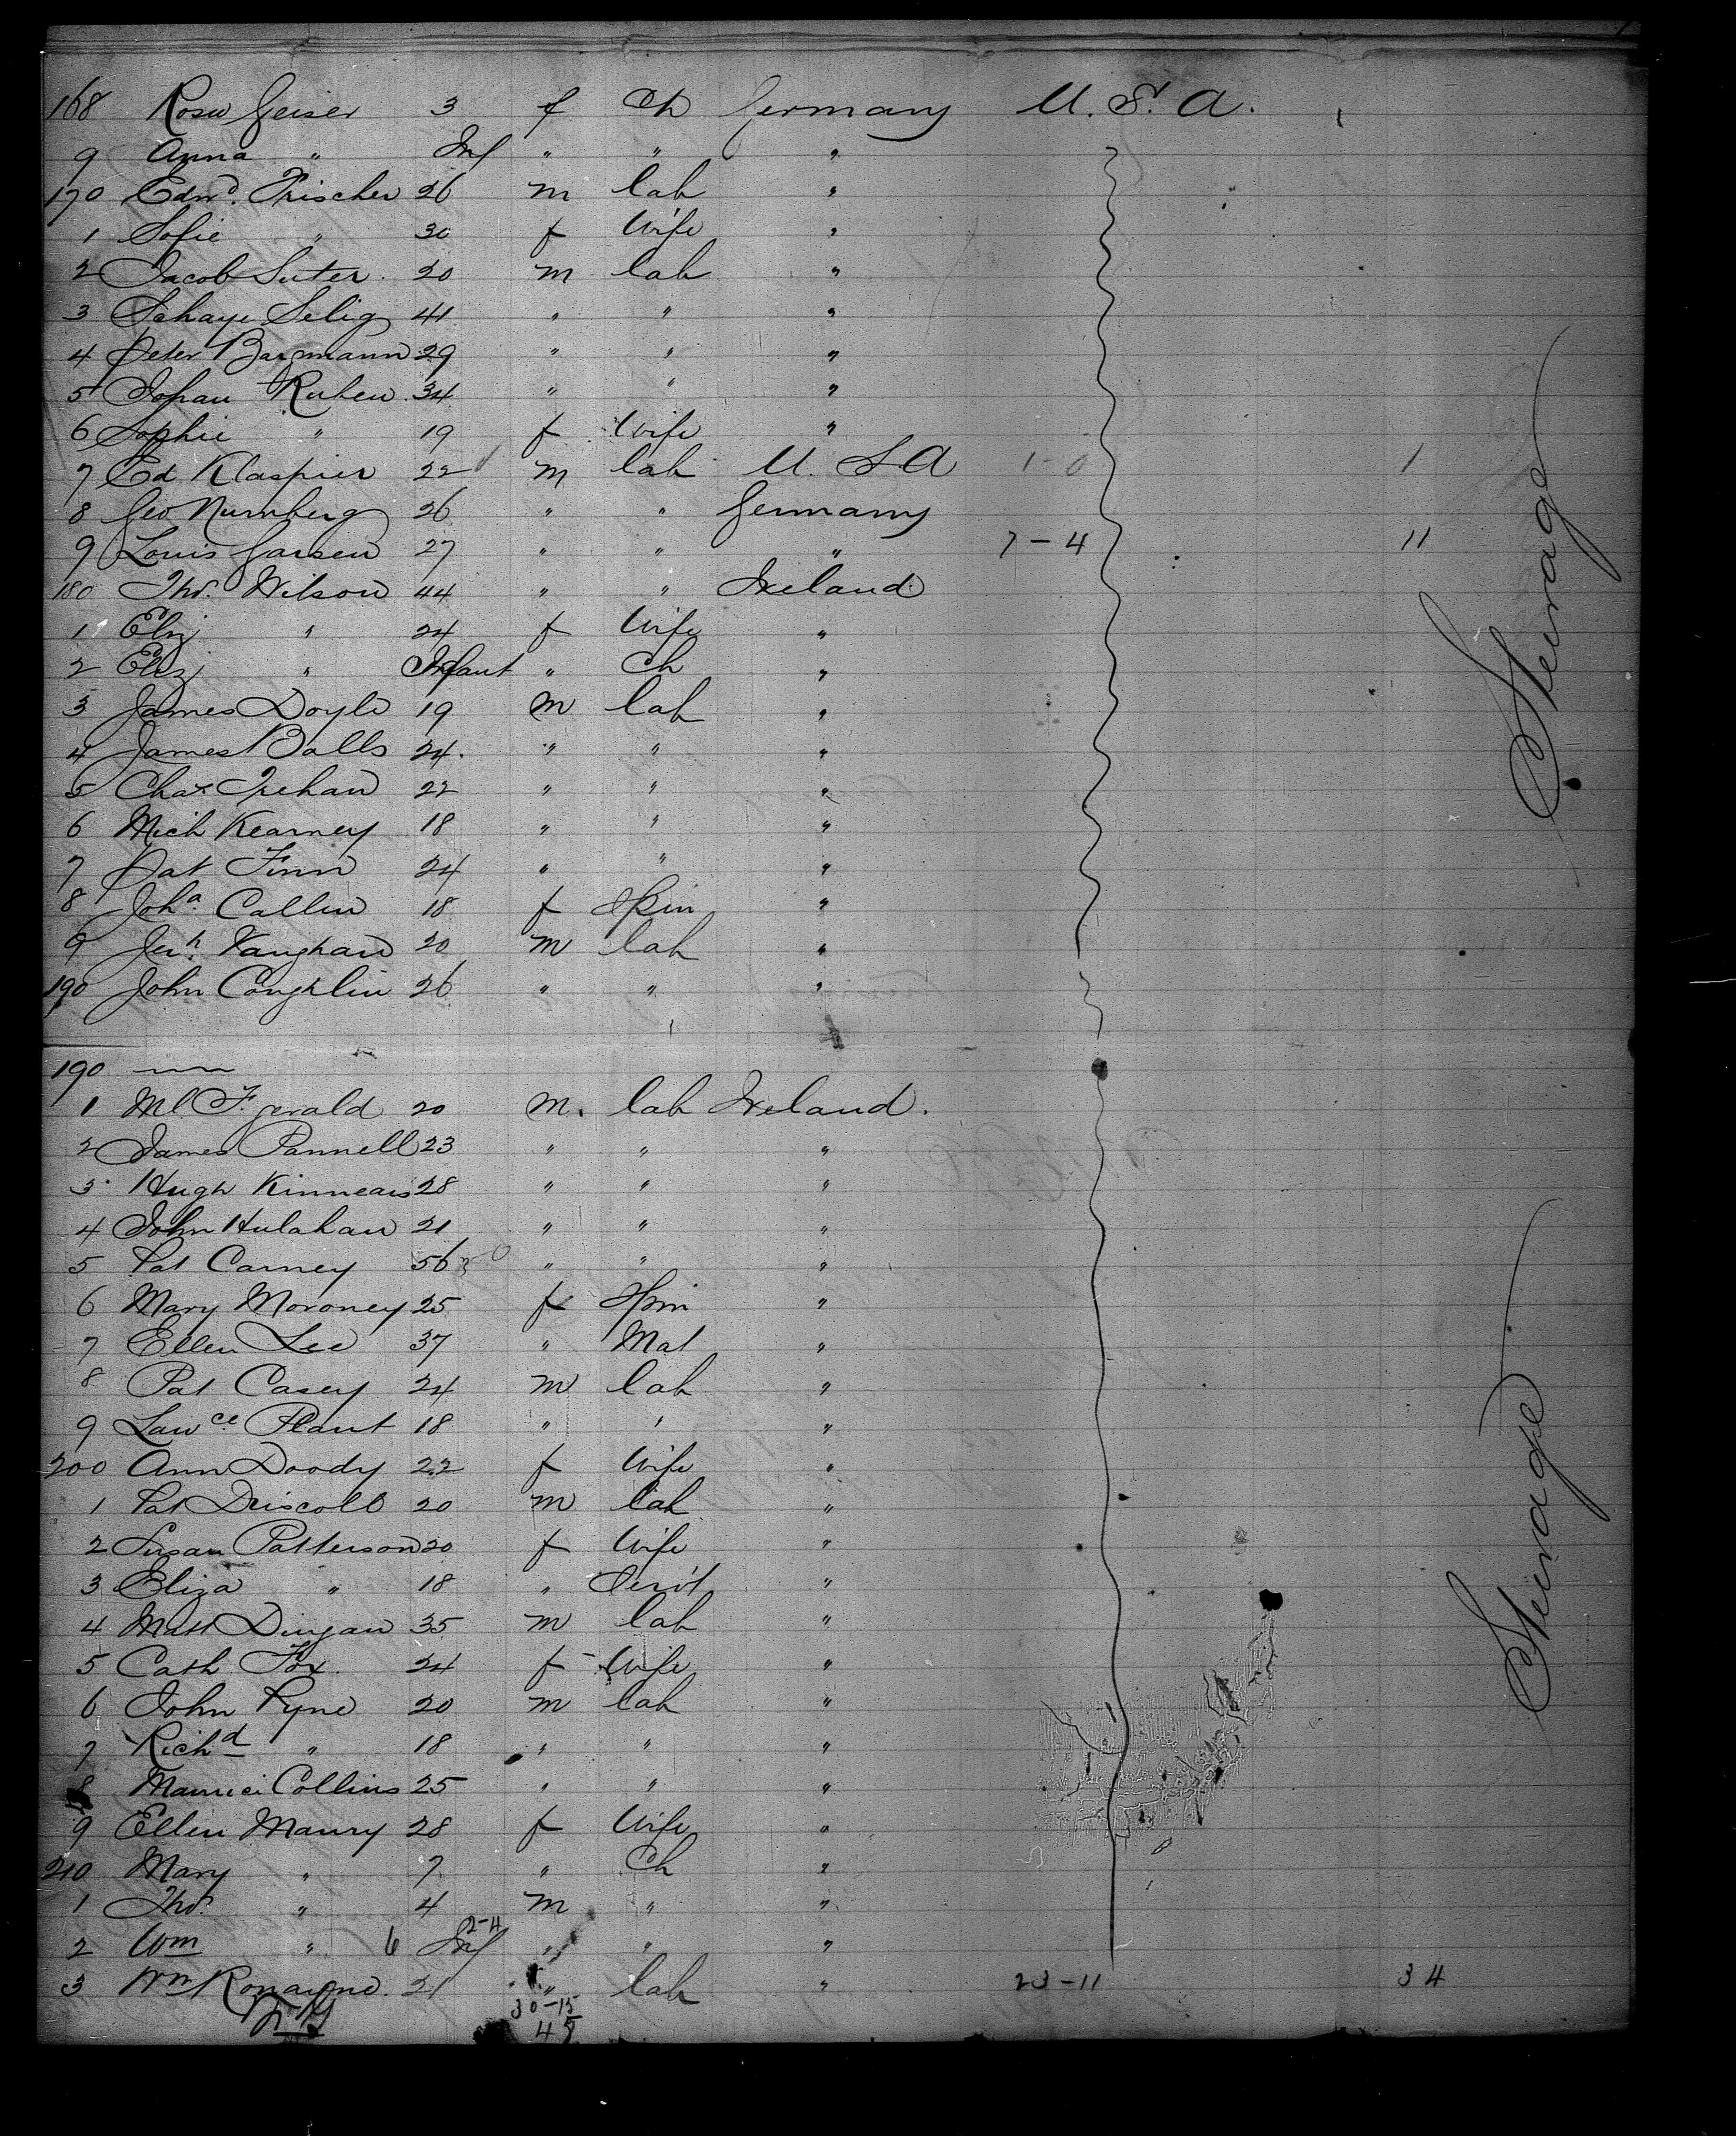 168 Rosa Geiser 3 f Ch Germany U. S. A.
9 Anna " Inf " " "
170 Edwd. Frischer 26 m lab "
1 Sofie " 30 f Wife "
2 Jacob Suter 20 m lab "
3 Selig 41 " " "
4 Peter Bargmann 29 " " "
5 Johan Ruben 34 " " "
6 Sophie " 19 f Wife "
7 Ed Klaspier 22 m lab U. S A 1-0 1
8 Geo Nurnberg 26 " " Germany
9 Louis Garsen 27 " " " 7-4 11
180 Thos. Wilson 44 " " Ireland
1 Eliz " 24 f Wife "
2 Eliz " Infant " Ch "
3 James Doyle 19 m lab "
4 James Balls 24. " " "
5 Chas. 22 " " "
6 Mich Kearney 18 " " "
7 Pat Finn 24 " " "
8 Joha. Callin 18 f Spin "
9 Jerh. Vaughan 20 m lab "
190 John Coughlin 26 " " "
Steerage
190
1 Ml F.gerald 20 m. lab Ireland.
2 James Pannell 23 " " "
3 Hugh Kinnear 28 " " "
4 John Hulahan 21 " " "
5 Pat Carney 56 " " "
6 Mary Moroney 25 f Spin "
7 Ellen Lee 37 " Mat "
8 Pat Casey 24 m lab "
9 Lawce Plant 18 " " "
200 Ann Doody 22 f Wife "
1 Pat Driscoll 20 m lab "
2 Susan Patterson 20 f Wife "
3 Eliza " 18 " Servt "
4 Matt Dingan 35 m lab "
5 Cath Fox. 24 f Wife "
6 John Pyne 20 m lab "
7 Richd " 18 " " "
8 Maurice Collins 25 " " "
9 Ellen Maury 28 f Wife "
210 Mary " 7 " Ch "
1 Thos. " 4 m " "
2 Wm " 6 Inf 2-4 " " "
3 Wm Ronayne. 21 " lab " 23-11 34
30-15
Steerage